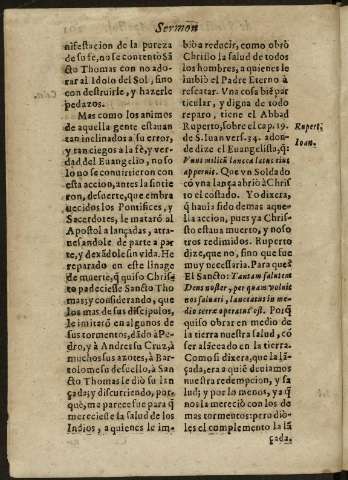 Sermon
nifestacion de la pureza
de su fe, no se contentò Sã
cto Thomas con no ado-
rar al Idolo del Sol, sino
con destruirle, y hazerle
pedazos.
Mas como los animos
de aquella gente estauan
tan inclinados a su error,
y tan ciegos a la fè, y ver-
dad del Euangelio, no so
lo no se conuirtieron con
esta accion, antes la sintie
ron, desuerte, que embra
uecidos los Pontifices, y
Sacerdotes, le mataró al
Apostol a lançadas, atra-
uesandole de parte a par
te, y dexãdole sin vida. He
reparado en este linage
de muerte, q̃ quiso Christo
padeciesse Sancto Tho
mas; y considerando, que
los mas de sus discipulos,
le imitaró en algunos de
sus tormentos, dãdo à Pe-
dro, y à Andres su Cruz, à
muchos sus azotes, à Bar-
tolome su desuello, à San
cto Thomas le diò su lan
çada; y discurriendo, por-
què, me parece fue para q̃
mereciesse la salud de los
Indios, a quienes le im-
bibò a reducir, como obrò
Christo la salud de todos
los hombres, a quienes le
imbiò el Padre Eterno à
rescatar. Vna cosa biē par
ticular, y digna de todo
reparo, tiene el Abbad
Ruperto, sobre el cap. 19.
de S. Iuan vers. 34. adon-
de dize el Euangelista, q̃:
Vnus militũ lancea latus eius
apperuit. Que vn Soldado
có vna lança abriò à Chris
to el costado. Yo dixera,
q̃ hauia sido demas aque-
lla accion, pues ya Chris-
to estaua muerto, y noso-
tros redimidos. Ruperto
dize, que no, sino que fue
muy necessaria. Para que?
El Sancto: Tantam salutem
Deus noster, per quam voluit
nos saluari, lanceatus in me-
dio terræ operatus est. Porq̃
quiso obrar en medio de
la tierra nuestra salud, có
ser alãceado en la tierra.
Como si dixera, que la lã-
çada, era a quiē deuiamos
nuestra redempcion, y sa
lud; y por lo menos, ya q̃
nos la mereciò con los de
mas tormentos: pero diò-
les el complemento la lã
çada.
Rupert.
Ioan.